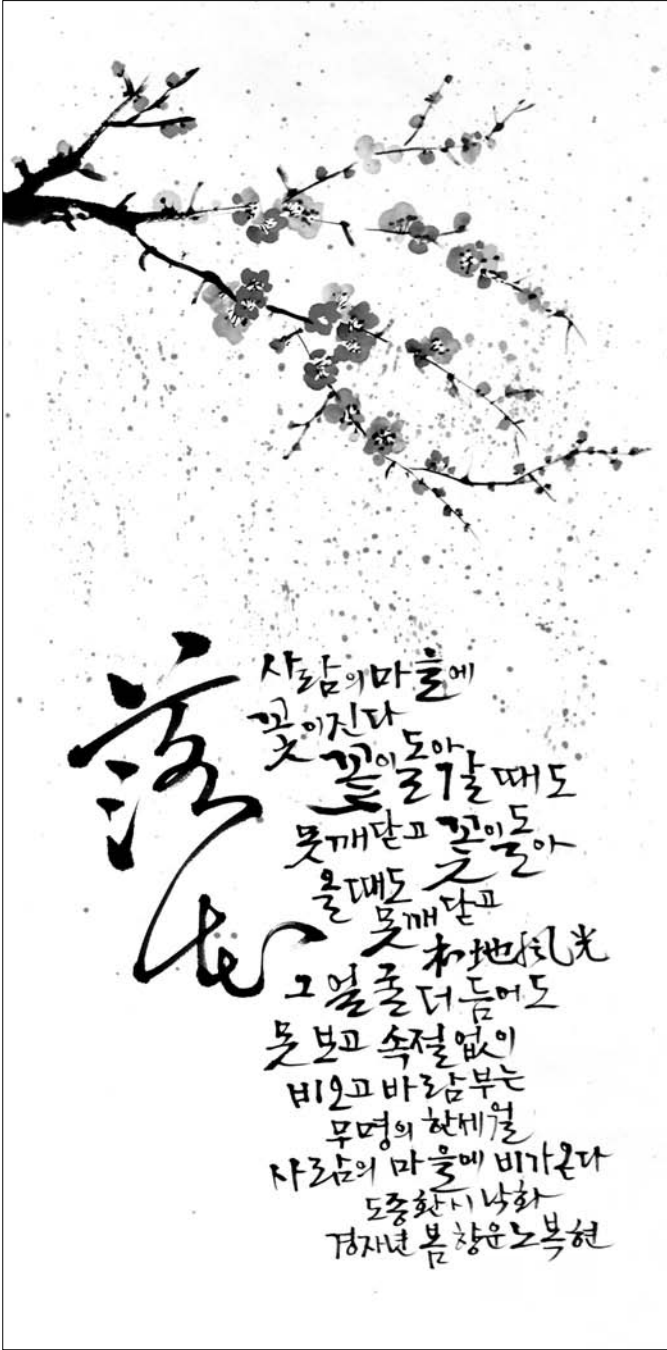 落花
사람의 마을에
꽃이 진다
꽃이 돌아갈 때도
못 깨닫고 꽃이 돌아
올 때도
못 깨닫고
本地風光
그 얼굴 더듬어도
못 보고 속절없이
비오고 바람부는
무명의 한세월
사람의 마을에 비가 온다
도종환 시 낙화
경자년 봄 창운 노복현